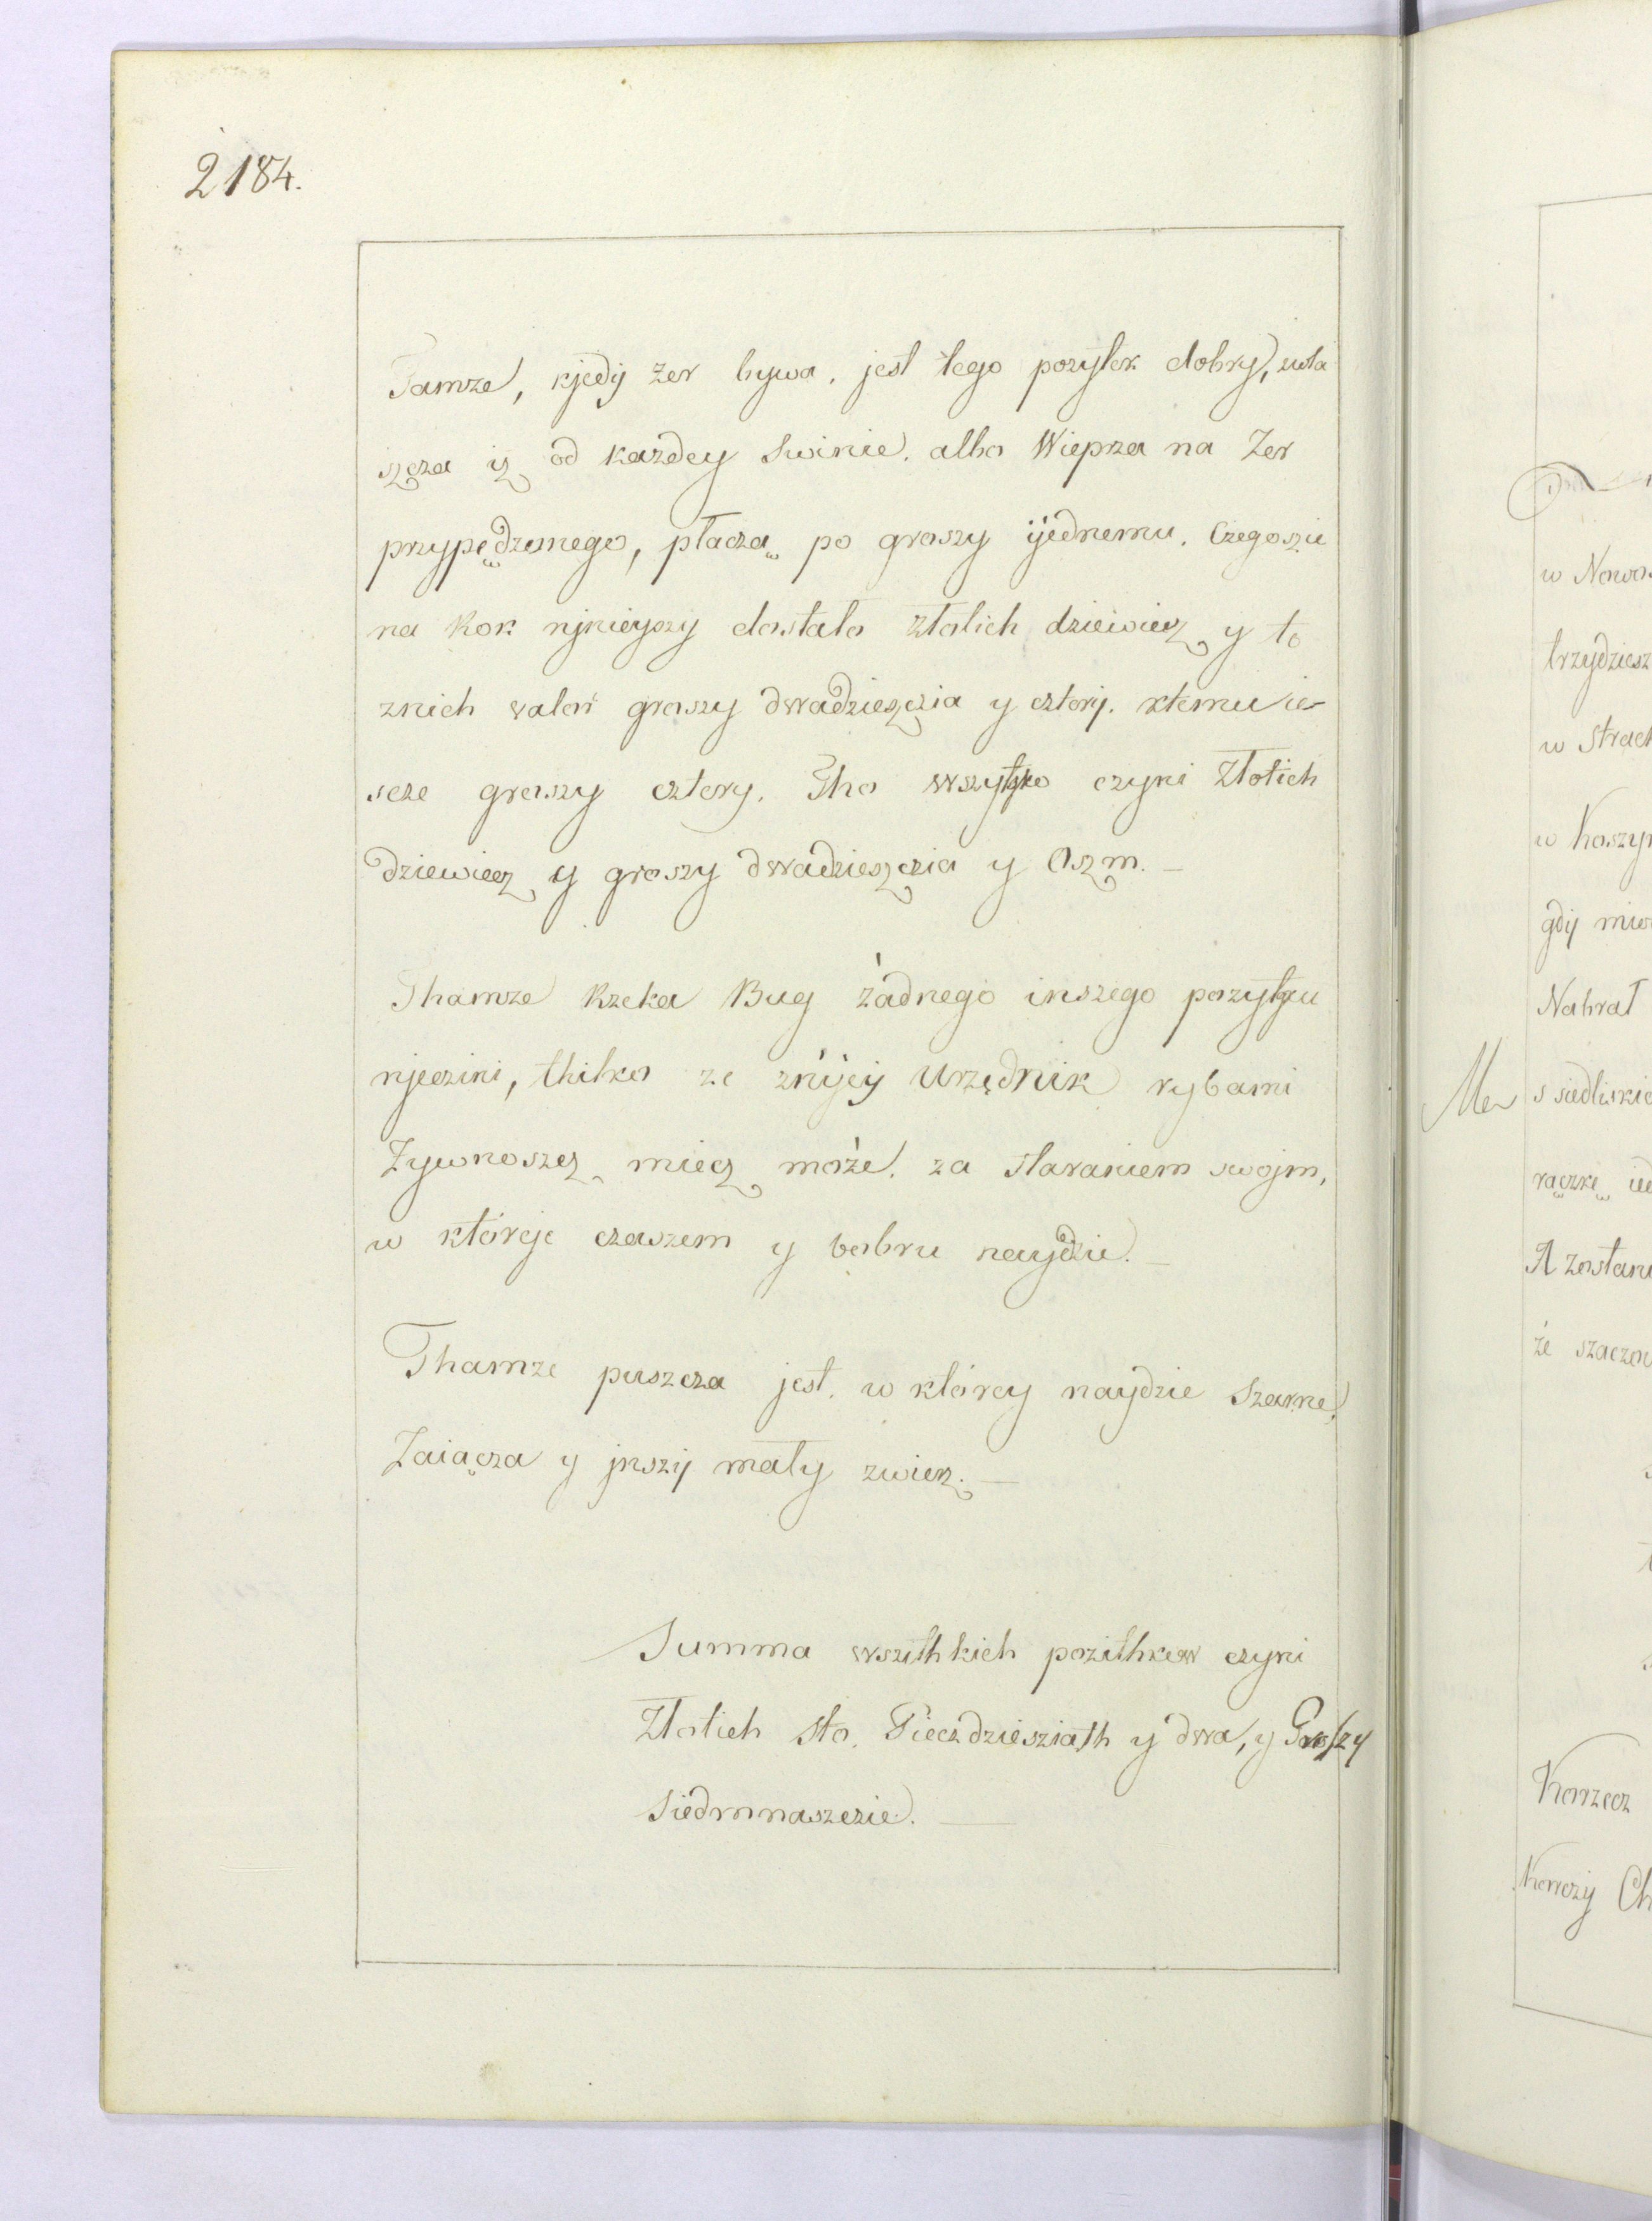 2184.
Tamze, kjedy żer bywa, jest tego pozytek dobry, zwła
szcza iz od kazdey Swinie, albo Wieprza na Zer
przypędzonego, płaczą po groszy ijednemu. Czegoszie
na Rok njnieyszy dostało złotich dziewiecz y to
znich valor groszy dwadzieszczia y cztery. ktemu ie-
scze groszy cztery. Tho wszytko czyni Złotich
dziewiecz y groszy dwadzieszczia y Oszm. —
Thamze Rzeka Bug żadnego inszego pozytku
njeczini, thilko ze znijej Urzędnik rybami
Zywnoszcz miecz może, za staraniem swojm,
w któreje czaszem y bobru naydzie. —
Thamze puszcza jest, w którey naydzie Szarne,
Zaiącza y jnszy mały zwierz. —
Summa wszithkich pozithkow czyni
Złotich sto, Piecdziesziath y dwa, y Groszy
Siedmnaszczie. —
w Nowo
trzydziesz
w Strach
w Koszy
gdy
Nabrał
s siedliski
rączki
A zostan
że szaczo
Korzecz
Korczy Ch